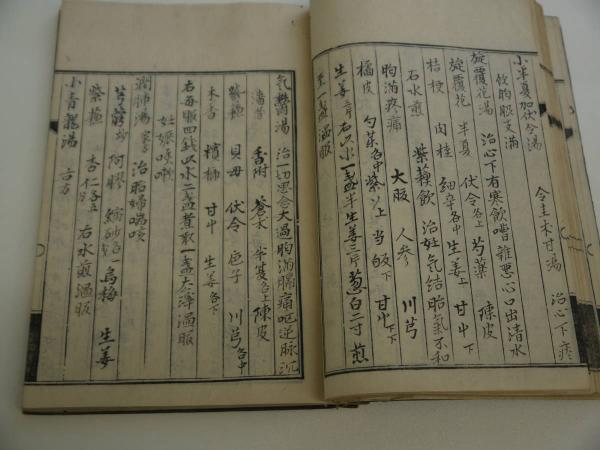 小半夏加伏令湯　令圭朮甘湯　治心下痞
飲胸脹支滿
旋覆花湯　治心下有寒飲嘈雜惡心口出清水
旋覆花　半夏　伏令各上　芍藥　陳皮
桔梗　肉桂　細辛各中　生姜上　甘中下
石水煎　紫蘓飲　治妊气结胎氣不和
胸滿疼痛　大服　人参　川芎
橘皮　勺藥各中　紫以上　当皈下　甘中下
生姜　右以水一盞半生姜三片葱白二寸煎
至一盞溫服
气鬱湯　治一切思念太過胸滿膈痛呕逆脉沉
香附　蒼朮　半夏各上　陳皮
紫蘓　貝母　伏令　梔子　川芎各中
木香　檳榔　甘中　生姜各下
右每服四錢以水二盞煮散一盞去滓溫服
妊娠咳嗽
潤肺湯　治胎婦喘咳
阿膠　縮砂各一　烏梅　生姜
紫蘓　杏仁各五　右水煎溫服
小青龍湯　古方